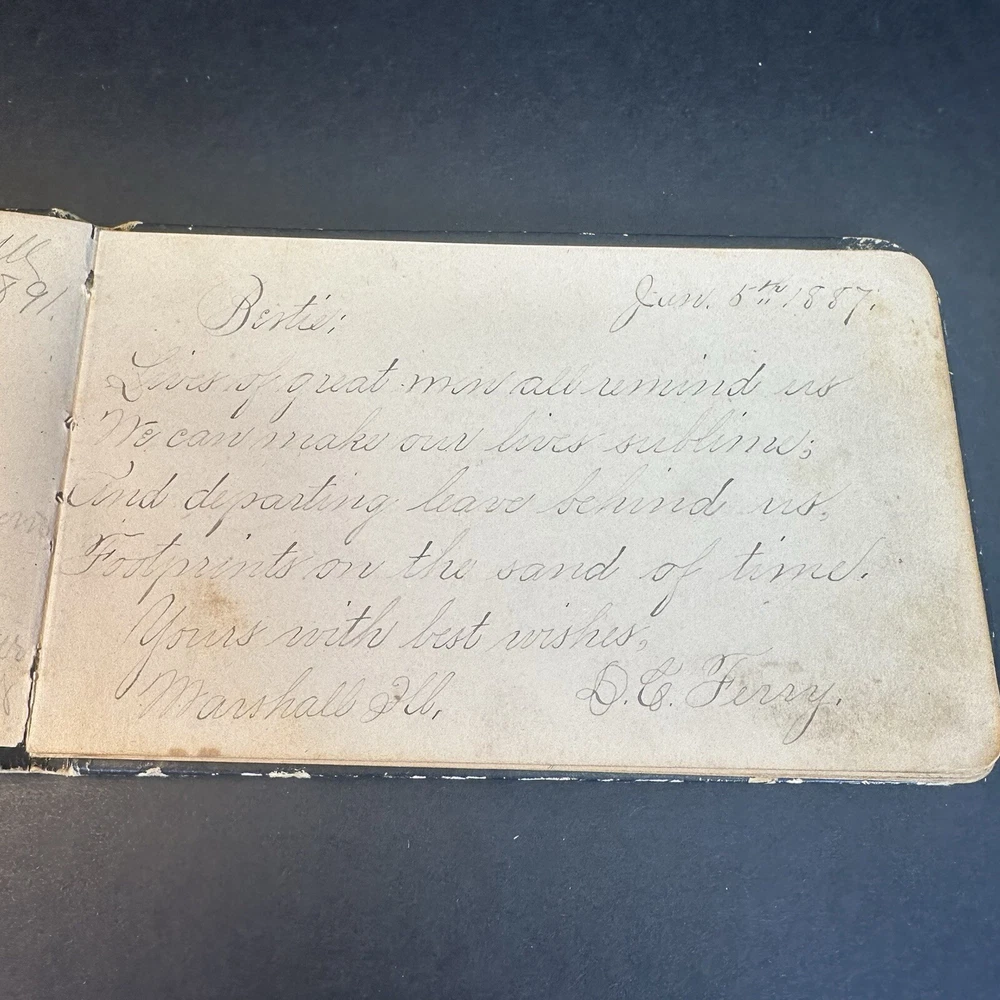 Bertie; Jan. 5th 1887.
Lives of great men all remind us
We can make our lives sublime;
And departing leave behind us,
Footprints on the sand of time.
Yours with best wishes,
Marshall Ill. D. C. Ferry.
Ill
891.